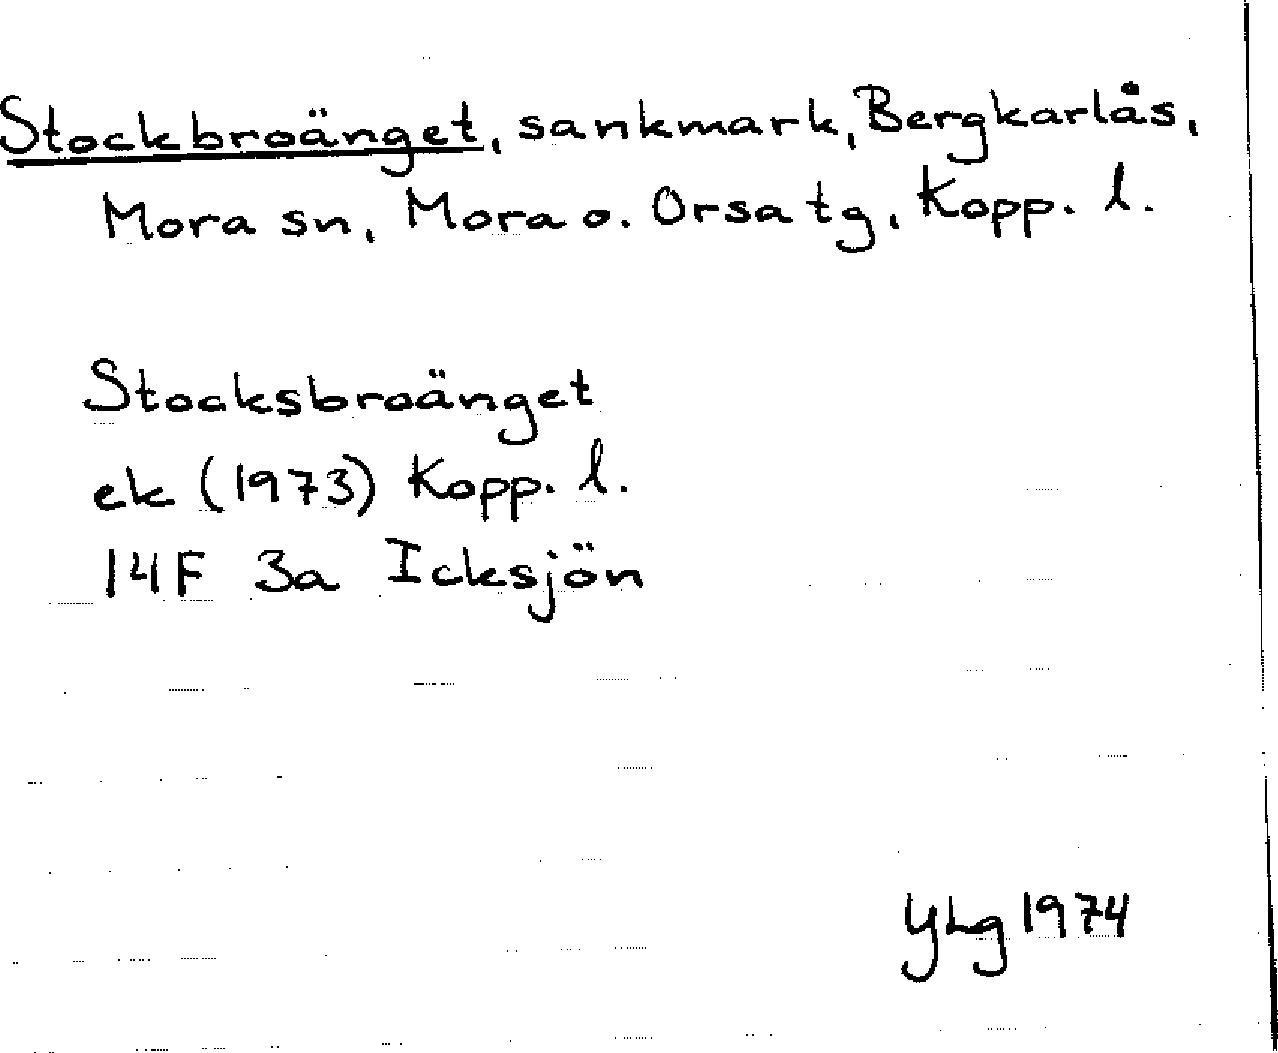 Stockbroänget, sankmark, Bergkarlås,
Mora sn, Mora o. Orsa tg, Kopp. l.
Stocksbroänget
ek (1973) Kopp. l.
14F 3a Icksjön
YLg 1974